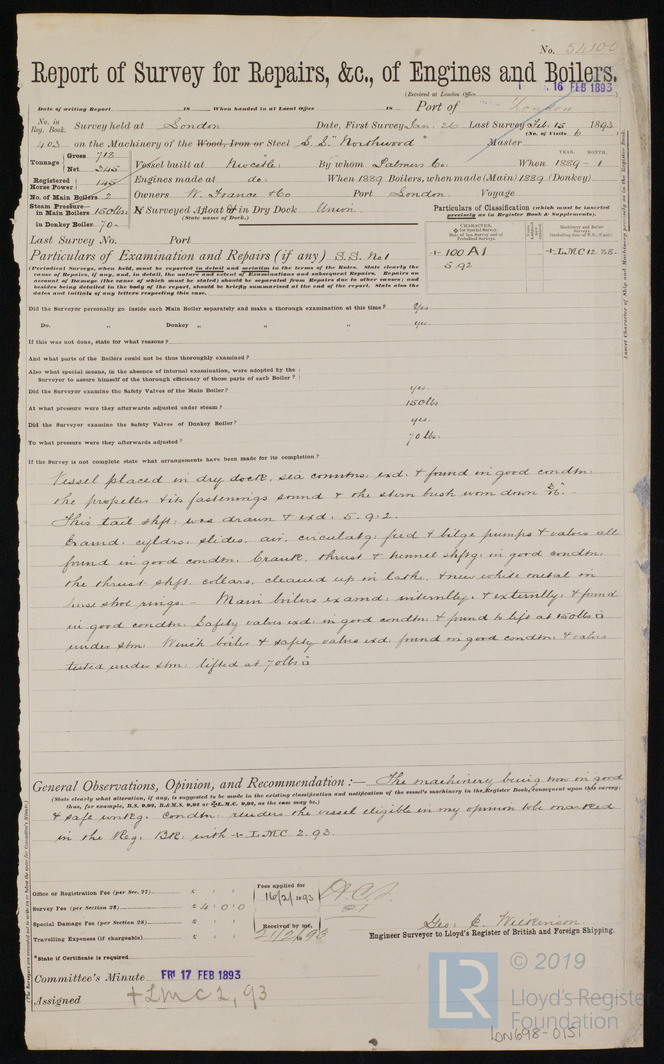 No. 54100
Report of Survey for Repairs, &c., of Engines and Boilers.
(Received at London Office 16 FEB 1893
Date of writing Report 18 When handed in at Local Office 18 Port of London
No. in Reg. Book. Survey held at London Date, First Survey Jan. 26 Last Survey Feb. 15 1893
(No. of Visits 6)
403 on the Machinery of the Wood, Iron or Steel S.S. "Northwood" Master
Tonnage Gross 718 Net 345 Vessel built at Newcastle By whom Palmers Co. When 1889 - 1
YEAR. MONTH.
Registered Horse Power 145 Engines made at do. When 1889 Boilers, when made (Main) 1889 (Donkey)
No. of Main Boilers 2 Owners W. France & Co Port London Voyage
Steam Pressure— in Main Boilers 150 lbs in Donkey Boiler 70 -
If Surveyed Afloat or in Dry Dock Union
(State name of Dock.)
Particulars of Classification (which must be inserted precisely as in Register Book & Supplements).
CHARACTER. Machinery and Boiler Surveys
+ 100 A1 + LMC 12.88.
5.92
Last Survey No. Port
Particulars of Examination and Repairs (if any) S.S. No 1
(Periodical Surveys, when held, must be reported in detail and seriatim in the terms of the Rules. State clearly the
cause of Repairs, if any, and, in detail, the nature and extent of Examinations and subsequent Repairs. Repairs on
account of Damage (the cause of which must be stated) should be separated from Repairs due to other causes; and
besides being detailed in the body of the report, should be briefly summarised at the end of the report. State also the
dates and initials of any letters respecting this case.
Insert Character of Ship and Machinery precisely as in the Register Book
Did the Surveyor personally go inside each Main Boiler separately and make a thorough examination at this time? Yes
Do. " Donkey " " " yes.
If this was not done, state for what reasons?
And what parts of the Boilers could not be thus thoroughly examined?
Also what special means, in the absence of internal examination, were adopted by the
Surveyor to assure himself of the thorough efficiency of those parts of each Boiler?
Did the Surveyor examine the Safety Valves of the Main Boiler? yes.
At what pressure were they afterwards adjusted under steam? 150 lbs
Did the Surveyor examine the Safety Valves of Donkey Boiler? yes.
To what pressure were they afterwards adjusted? 70 lbs.
If the Survey is not complete state what arrangements have been made for its completion?
Vessel placed in dry dock, sea conntns: exd. & found in good condtn:
the propeller & its fastenings sound & the stern bush worn down 3/16". -
This tail shft: was drawn & exd: 5.92.
Examd: cyldrs: slides, air, circulatg: feed & bilge pumps & valves all
found in good condtn: Crank, thrust & tunnel shftg: in good condtn:
the thrust shft: collars, cleaned up in lathe, & new white metal on
horse shoe rings. - Main boilers examd: internlly: & externlly: & found
in good condtn: Safety valves exd: in good condtn: & found to lift at 150 lbs □"
under stm: Winch boiler & safety valves exd: found in good condtn: & valves
tested under stm: lifted at 70 lbs □"
General Observations, Opinion, and Recommendation :— The machinery being now in good
(State clearly what alteration, if any, is suggested to be made in the existing classification and notification of the vessel's machinery in the Register Book, consequent upon this survey;
thus, for example, B.S. 9,92, B.&M.S. 9,92 or +L.M.C. 9,92, as the case may be.)
& safe workg. condtn: renders the vessel eligible in my opinion to be marked
in the Reg. Bk: with + LMC 2.93.
Office or Registration Fee (per Sec. 27) £ : :
Survey Fee (per Section 28) £ 4 : 0 : 0
Special Damage Fee (per Section 28) £ : :
Travelling Expenses (if chargeable) £ : :
Fees applied for
16/2/1893
Received by me,
21/2/93
*State if Certificate is required
Geo. C. Wilkinson
Engineer Surveyor to Lloyd's Register of British and Foreign Shipping.
Committee's Minute FRI 17 FEB 1893
Assigned + LMC 2,93
LR
© 2019
Lloyd's Register
Foundation
LON698-0151